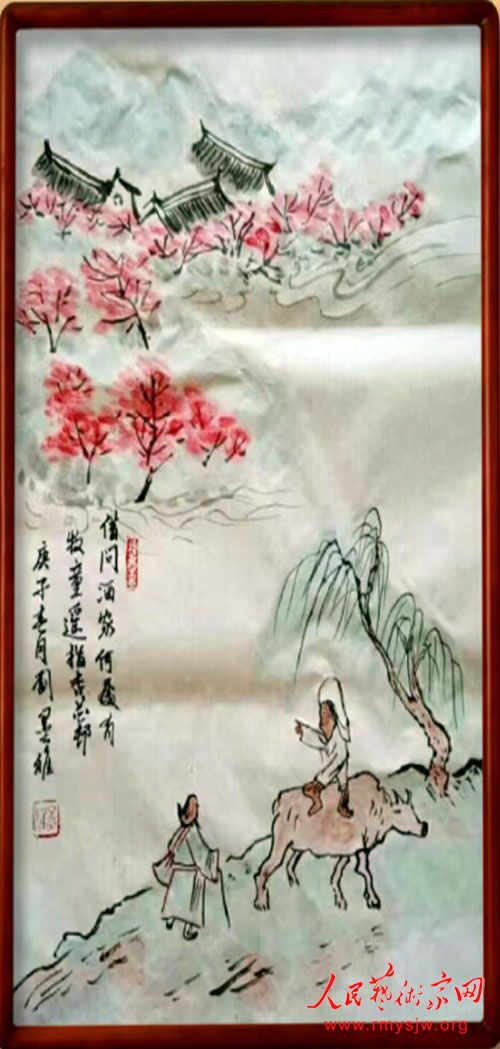 借问酒家何处有
牧童遥指杏花邨
庚子春月刘墨雄
人民藝術家网
www.rmysjw.org